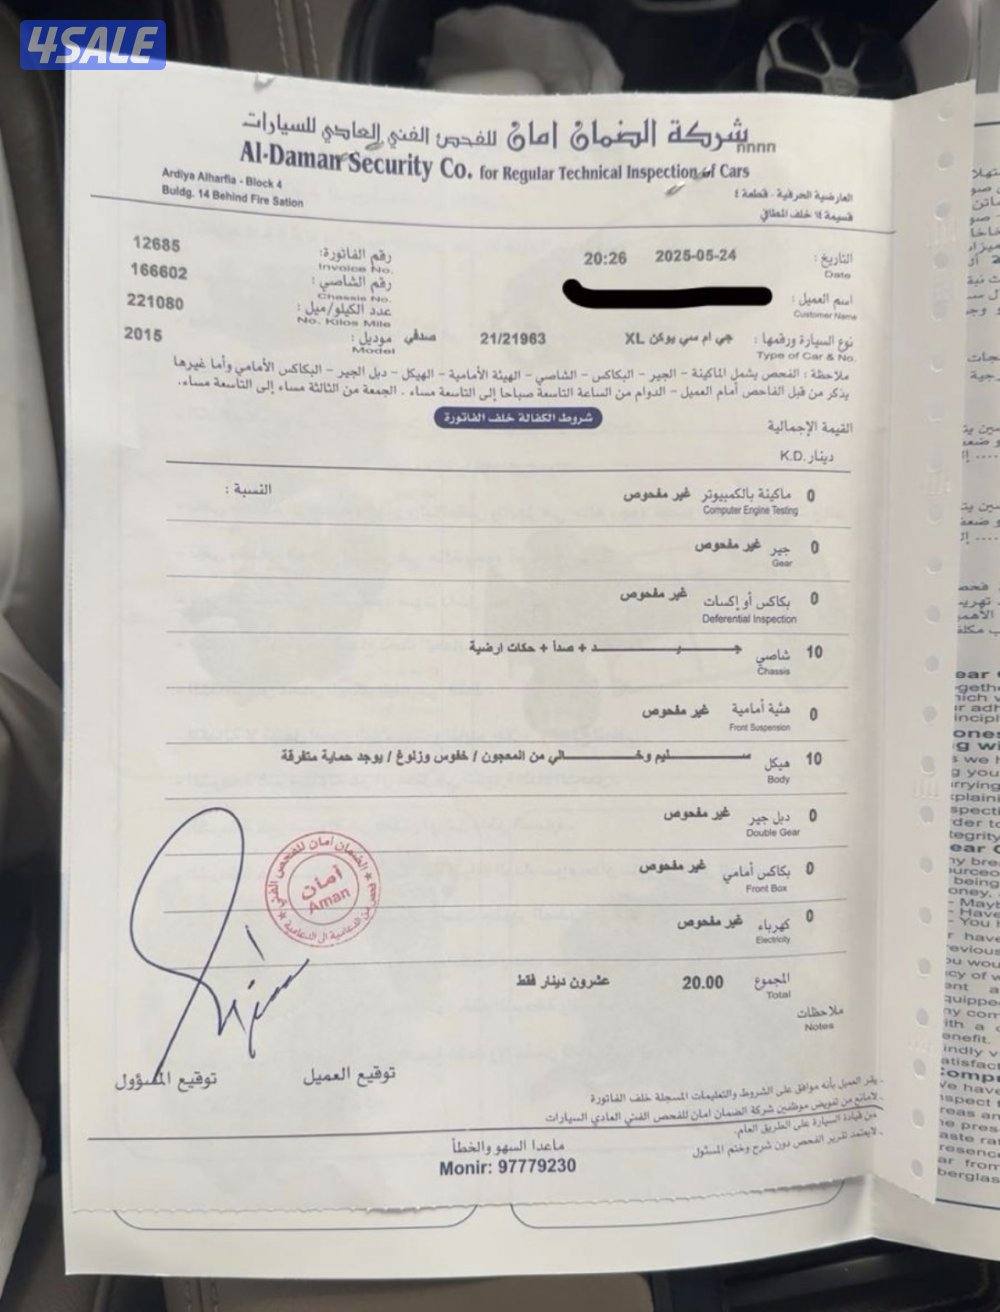 4SALE
شركة الضمان امان للفحص الفني العادي للسيارات
nnnn
Al-Daman Security Co. for Regular Technical Inspection of Cars
Ardiya Alharfia - Block 4
Buldg. 14 Behind Fire Sation
العارضية الحرفية - قطعة ٤
قسيمة ١٤ خلف المطافي
التاريخ : 2025-05-24 20:26
Date
رقم الفاتورة: 12685
Invoice No.
رقم الشاصي : 166602
Chassis No.
اسم العميل :
Customer Name
عدد الكيلو/ميل : 221080
No. Kilos Mile
نوع السيارة ورقمها : جي ام سي يوكن XL 21/21963 صدفي
Type of Car & No.
موديل : 2015
Model
ملاحظة : الفحص يشمل الماكينة - الجير - البكاكس - الشاصي - الهيئة الأمامية - الهيكل - دبل الجير - البكاكس الأمامي وأما غيرها
يذكر من قبل الفاحص أمام العميل - الدوام من الساعة التاسعة صباحا إلى التاسعة مساء . الجمعة من الثالثة مساء إلى التاسعة مساء.
شروط الكفالة خلف الفاتورة
القيمة الإجمالية
دينار K.D.
0 ماكينة بالكمبيوتر غير مفحوص النسبة :
Computer Engine Testing
0 جير غير مفحوص
Gear
0 بكاكس أو إكسات غير مفحوص
Deferential Inspection
10 شاصي جـــــيـــــد + صدأ + حكات ارضية
Chassis
0 هئية أمامية غير مفحوص
Front Suspension
10 هيكل ســـــليم وخـــــالي من المعجون / خفوس وزلوغ / يوجد حماية متفرقة
Body
0 دبل جير غير مفحوص
Double Gear
0 بكاكس أمامي غير مفحوص
Front Box
0 كهرباء غير مفحوص
Electricity
المجموع 20.00 عشرون دينار فقط
Total
ملاحظات
Notes
الضمان امان للفحص الفني
أمان
Aman
توقيع العميل
توقيع المسؤول
- يقر العميل بأنه موافق على الشروط والتعليمات المسجلة خلف الفاتورة
- لامانع من تفويض موظفين شركة الضمان امان للفحص الفني العادي السيارات
من قيادة السيارة على الطريق العام.
- لايعتمد تقرير الفحص دون شرح وختم المسئول
ماعدا السهو والخطأ
Monir: 97779230